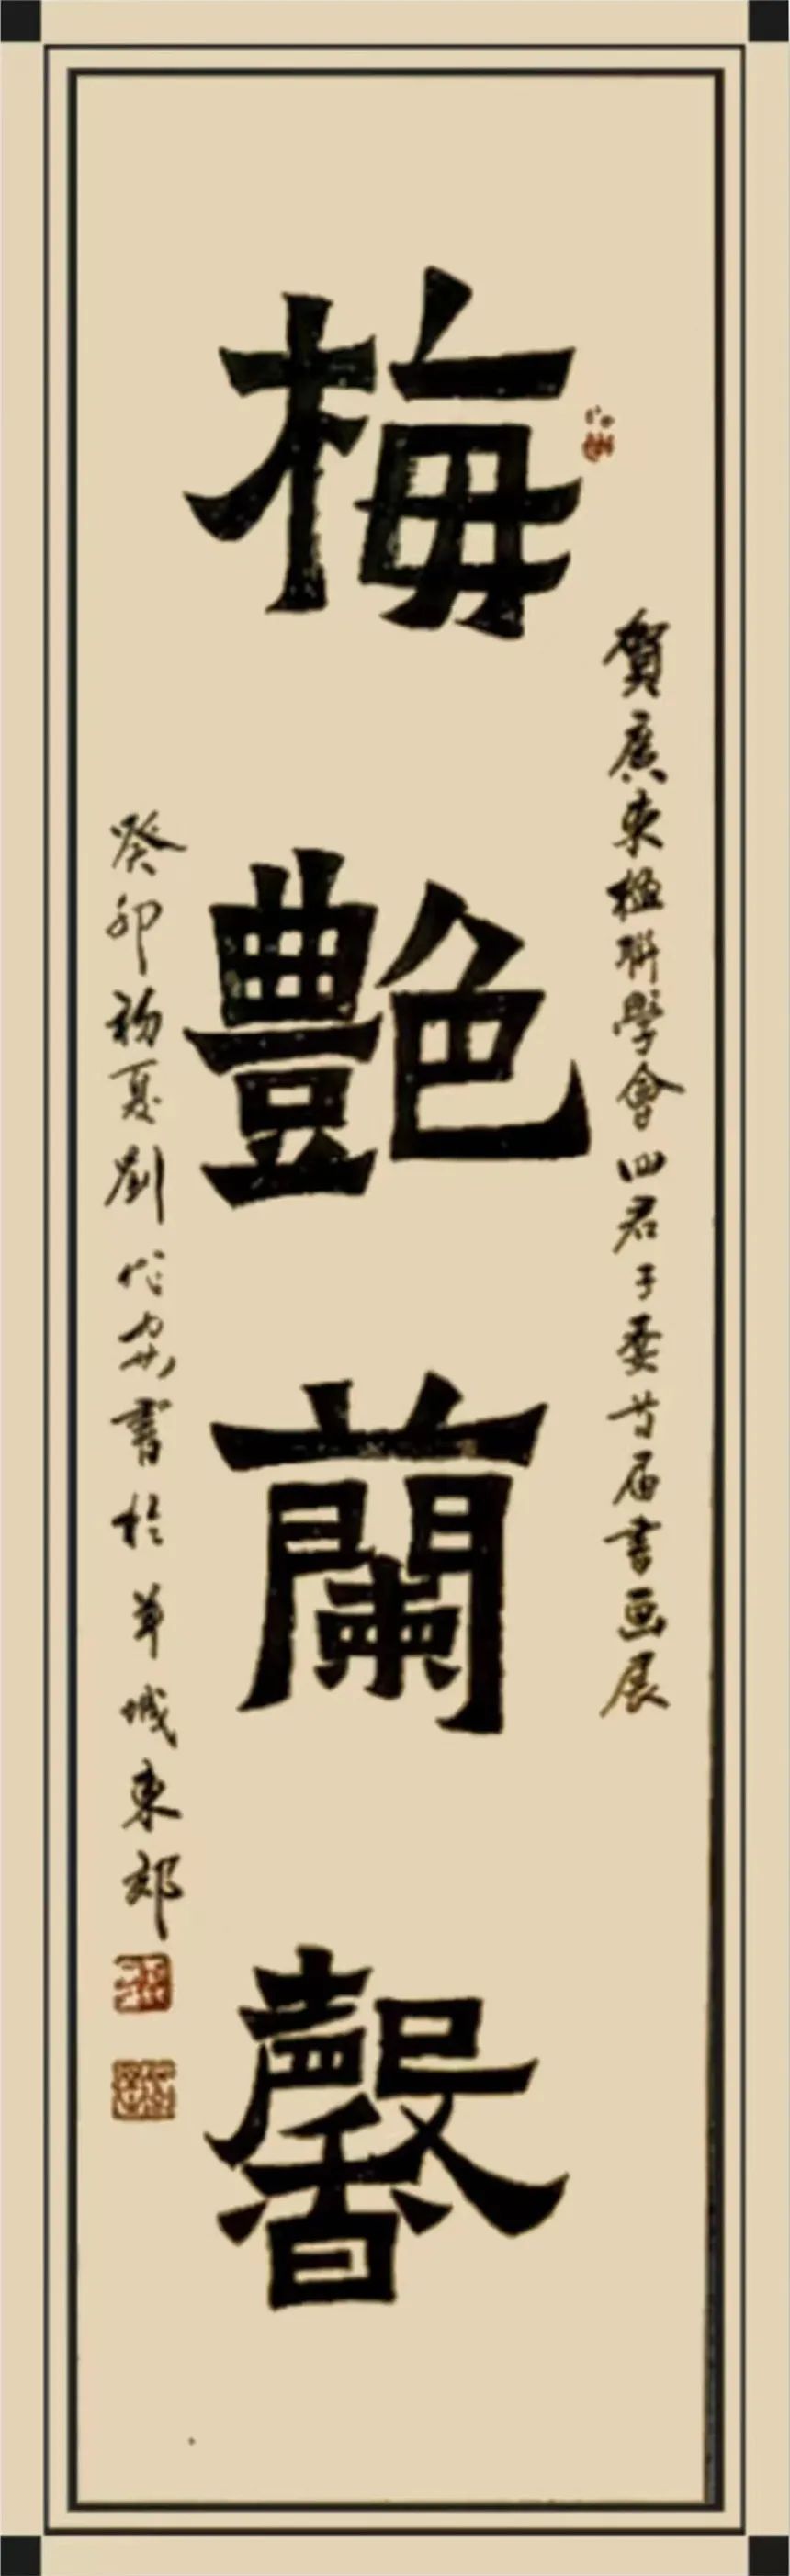 賀廣東楹聯學會四君子委首届書画展
梅艷蘭馨
癸卯初夏劉代安書於羊城東郊